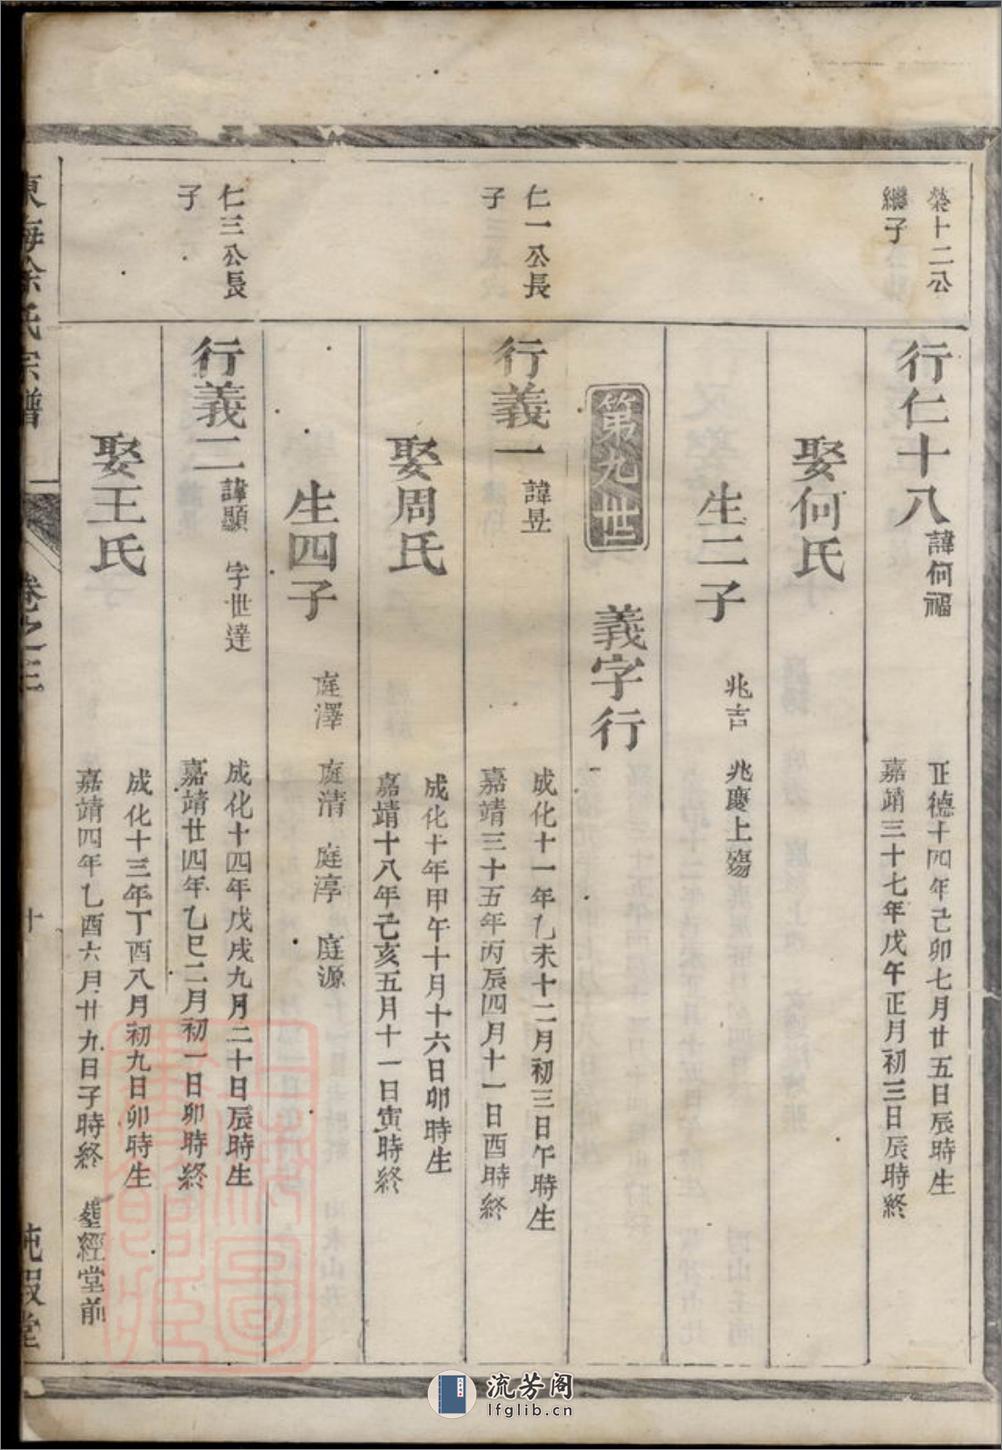 榮十二公
繼子
行仁十八 諱何福
正德十四年己卯七月廿五日辰時生
嘉靖三十七年戊午正月初三日辰時終
娶何氏
生二子 兆吉 兆慶上殤
第九世 義字行
仁一公長
子
行義一 諱昱
成化十一年乙未十二月初三日午時生
嘉靖三十五年丙辰四月十一日酉時終
娶周氏
成化十年甲午十月十六日卯時生
嘉靖十八年己亥五月十一日寅時終
生四子 庭澤 庭清 庭淳 庭源
仁三公長
子
行義二 諱顯 字世達
成化十四年戊戌九月二十日辰時生
嘉靖廿四年乙巳二月初一日卯時終
娶王氏
成化十三年丁酉八月初九日卯時生
嘉靖四年乙酉六月廿九日子時終 塟經堂前
東海徐氏宗譜 卷之三 十 純嘏堂
流芳阁
lfglib.cn